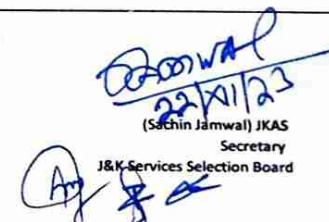 22/XI/23
(Sachin Jamwal) JKAS
Secretary
J&K Services Selection Board